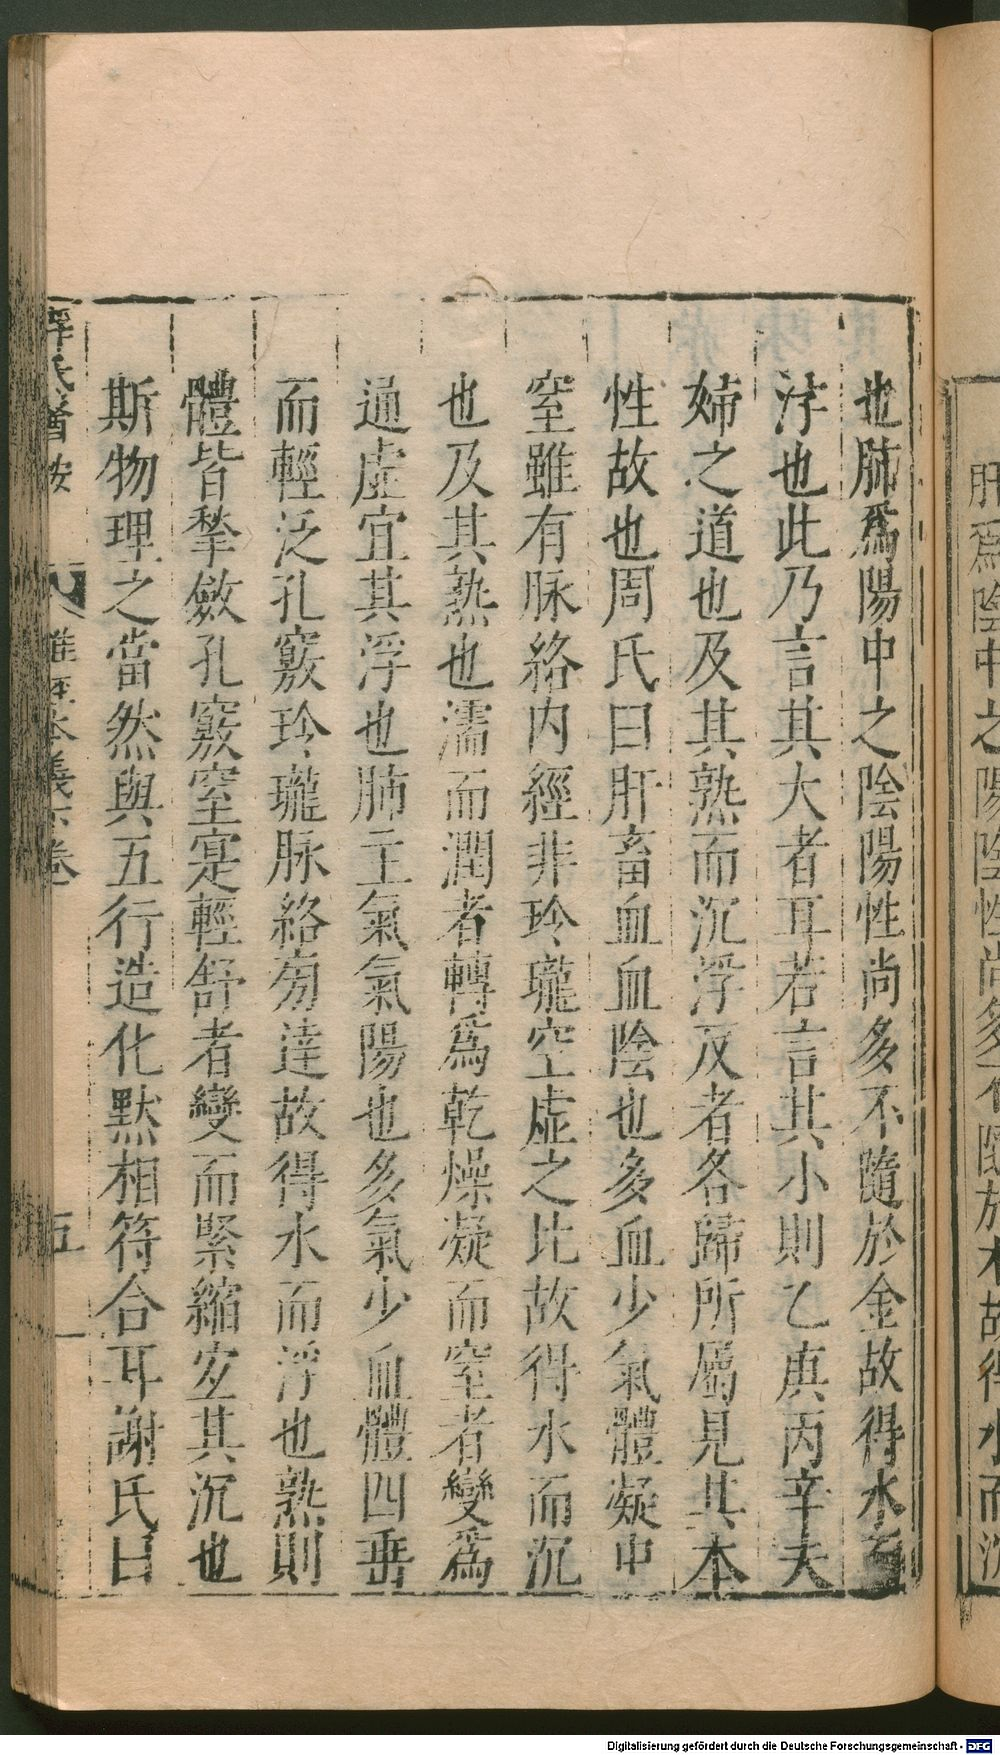 也肺爲陽中之陰陽性尚多不隨於金故得水而
浮也此乃言其大者耳若言其小則乙庚丙辛夫
婦之道也及其熟而沉浮反者各歸所屬見其本
性故也周氏曰肝畜血血陰也多血少氣體凝中
窒雖有脉絡内經非玲瓏空虛之比故得水而沉
也及其熟也濡而潤者轉爲乾燥凝而窒者變爲
通虛宜其浮也肺主氣氣陽也多氣少血體四垂
而輕泛孔竅玲瓏脉絡旁達故得水而浮也熟則
體皆揫斂孔竅窒寔輕舒者變而緊縮宜其沉也
斯物理之當然與五行造化黙相符合耳謝氏曰
薛氏醫按
難經本義下卷
五
肝爲陰中之陽陰性尚多不隨於木故得水而沉
Digitalisierung gefördert durch die Deutsche Forschungsgemeinschaft - DFG